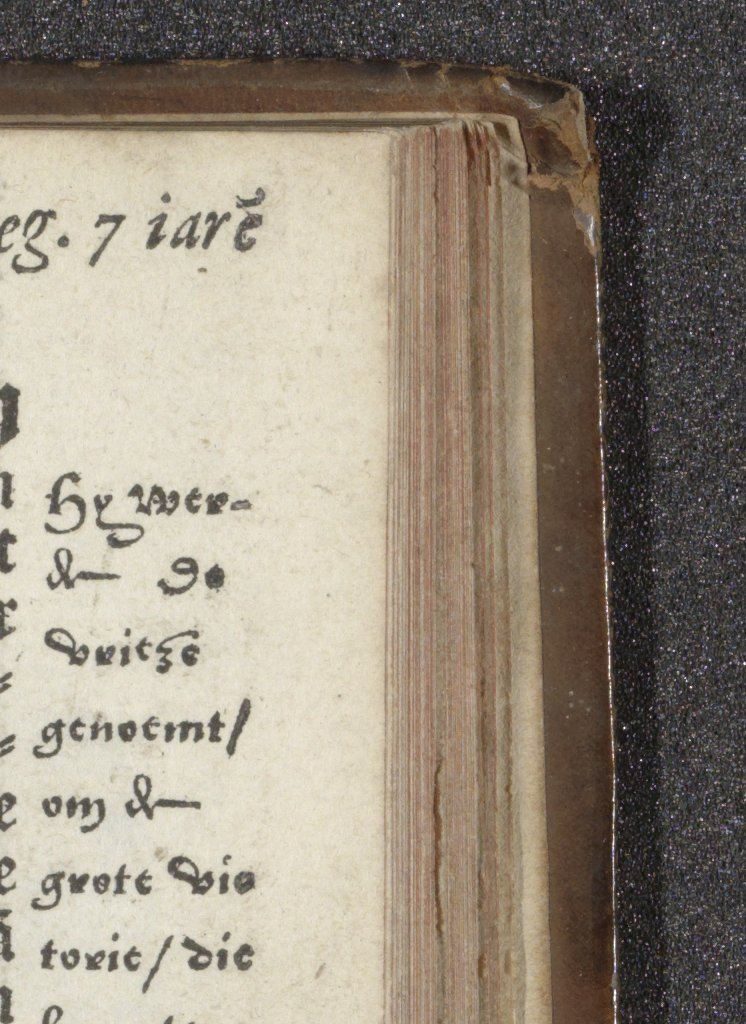 eg. 7 iarē
Hy wer-
de De
vritze
genoemt/
om de
grote vic
torie/ die